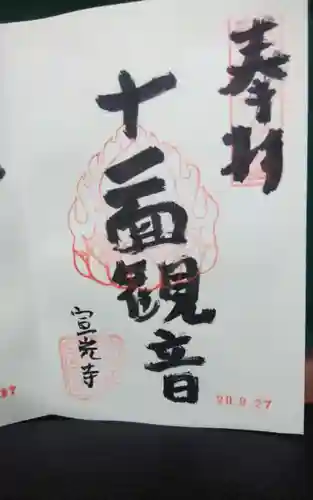 奉拝
十一面観音
宣光寺
28.9.27